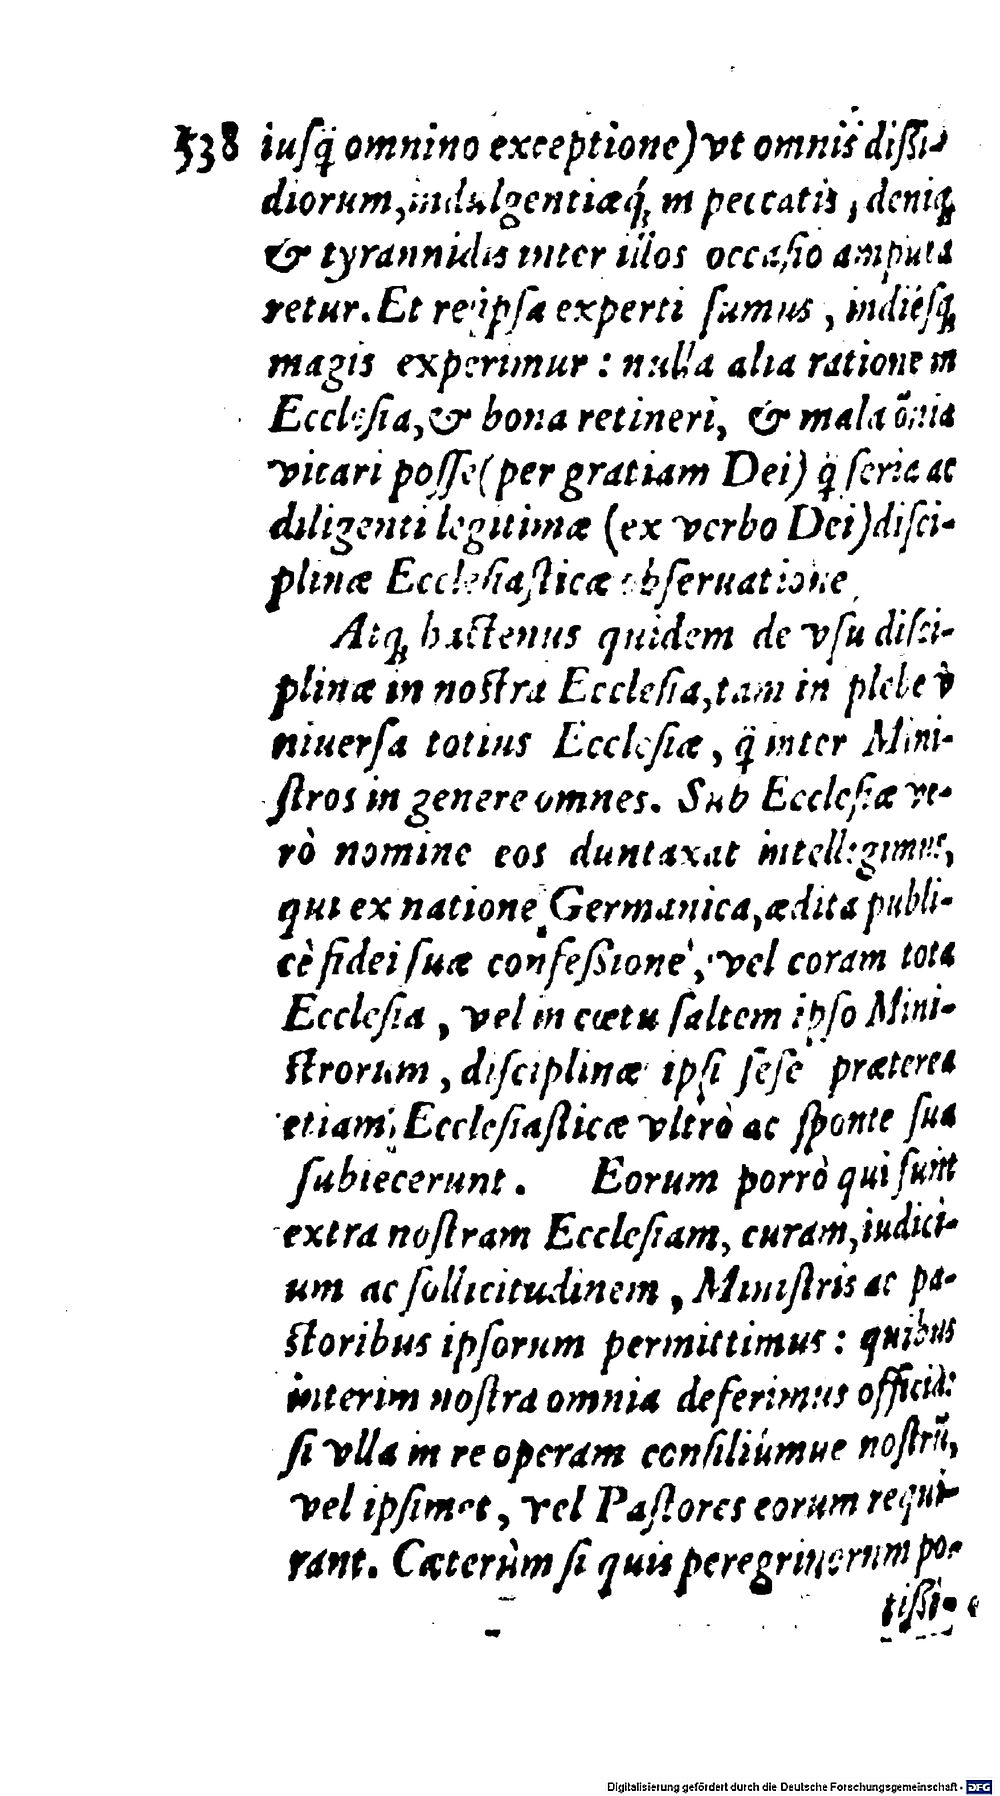 538 iuſq̃ omnino exceptione) vt omnis diſſi-
diorum, indulgentiæq́ꝫ in peccatis, deniqꝫ
& tyrannidis inter illos occaſio amputa
retur. Et reipſa experti ſumus, indiéſqꝫ
magis experimur: nulla alia ratione in
Eccleſia, & bona retineri, & mala õnia
vitari poſſe (per gratiam Dei) q̃ ſeria ac
diligenti legitimæ (ex verbo Dei) diſci-
plinæ Eccleſiaſticæ obſeruatione.
Atqꝫ hactenus quidem de vſu diſci-
plinæ in noſtra Eccleſia, tam in plebe v̀
niuerſa totius Eccleſiæ, q̃ inter Mini-
ſtros in genere omnes. Sub Eccleſiæ ve-
rò nomine eos duntaxat intellegimus,
qui ex natione Germanica, ædita publi-
cè fidei ſuæ confeſſione, vel coram tota
Eccleſia, vel in cœtu ſaltem ipſo Mini-
ſtrorum, diſciplinæ ipſi ſeſe præterea
etiam Eccleſiaſticæ vltrò ac ſponte ſua
ſubiecerunt. Eorum porrò qui ſunt
extra noſtram Eccleſiam, curam, iudici-
um ac ſollicitudinem, Miniſtris ac pa-
ſtoribus ipſorum permittimus: quibus
interim noſtra omnia deferimus officia:
ſi vlla in re operam conſiliúmue noſtrũ,
vel ipſimet, vel Paſtores eorum requi-
rant. Cæterùm ſi quis peregrinorum po-
tiſſi-
Digitalisierung gefördert durch die Deutsche Forschungsgemeinschaft - DFG